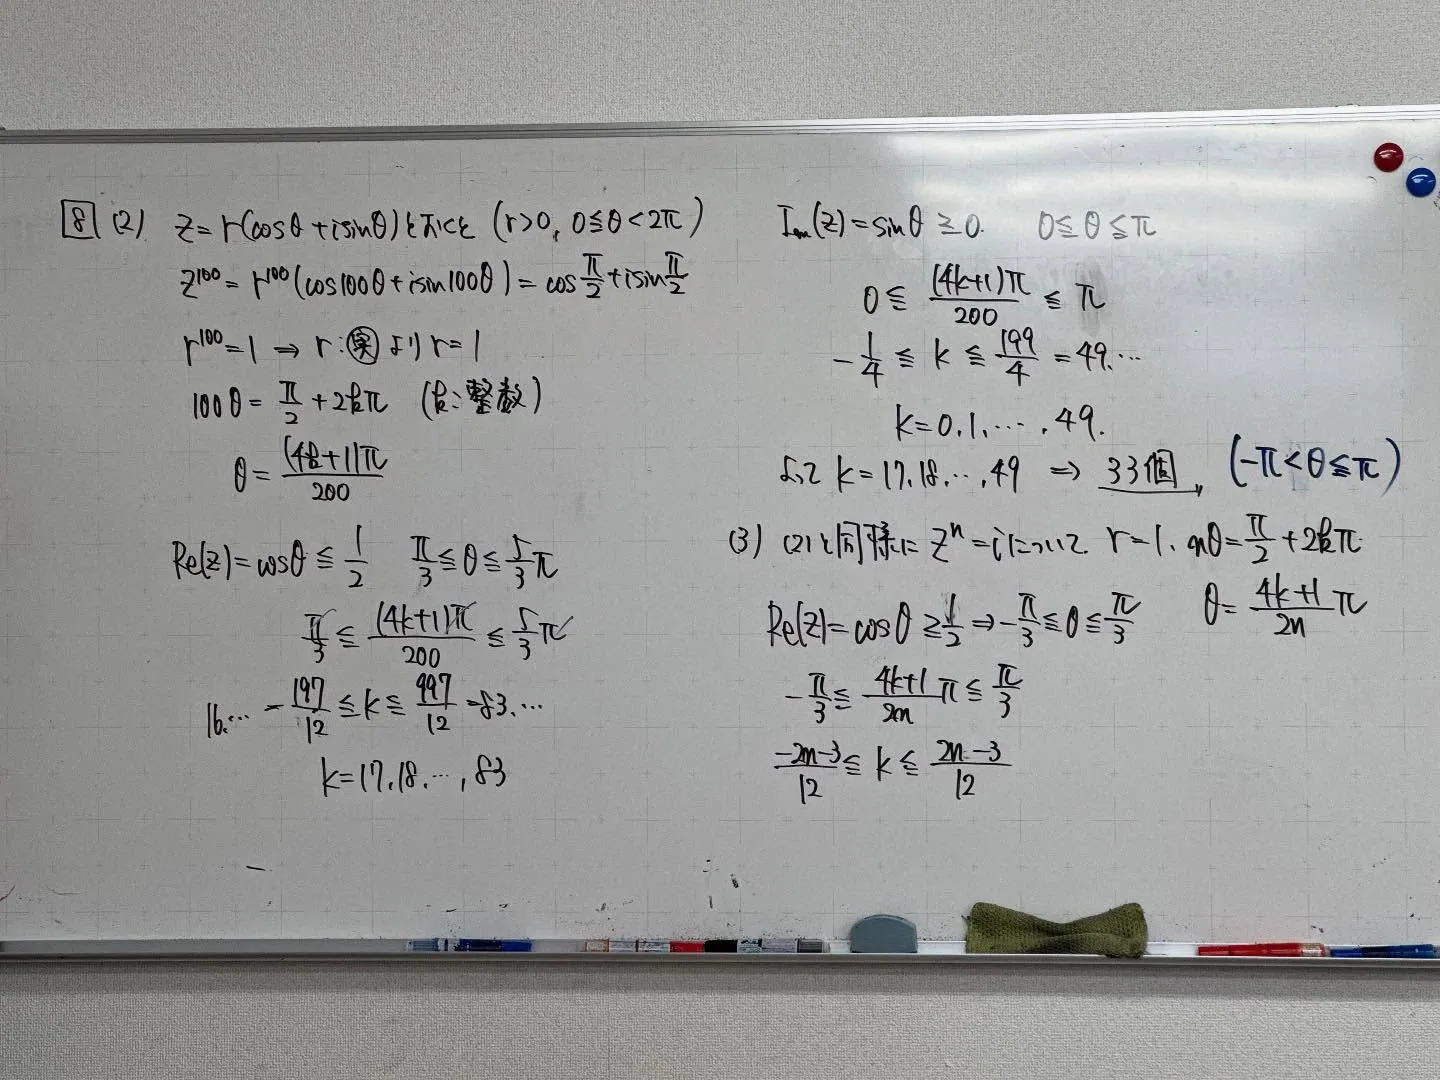 8 (2) z=r(cosθ+isinθ)とおくと (r>0, 0≦θ<2π)
z¹⁰⁰=r¹⁰⁰(cos100θ+isin100θ)=cos π/2+isin π/2
r¹⁰⁰=1 ⇒ r:実 より r=1
100θ=π/2+2kπ (k:整数)
θ=(4k+1)π/200
Re(z)=cosθ≦1/2 π/3≦θ≦5/3π
π/3≦(4k+1)π/200≦5/3π
16.… -197/12≦k≦997/12=83.…
k=17,18,…,83
Im(z)=sinθ≧0. 0≦θ≦π
0≦(4k+1)π/200≦π
-1/4≦k≦199/4=49.…
k=0,1,…,49.
よって k=17,18,…,49 ⇒ 33個, (-π<θ≦π)
(3) (2)と同様に zⁿ=iについて r=1, nθ=π/2+2kπ
θ=4k+1/2n π
Re(z)=cosθ≧1/2⇒-π/3≦θ≦π/3
-π/3≦4k+1/2n π≦π/3
-2n-3/12≦k≦2n-3/12